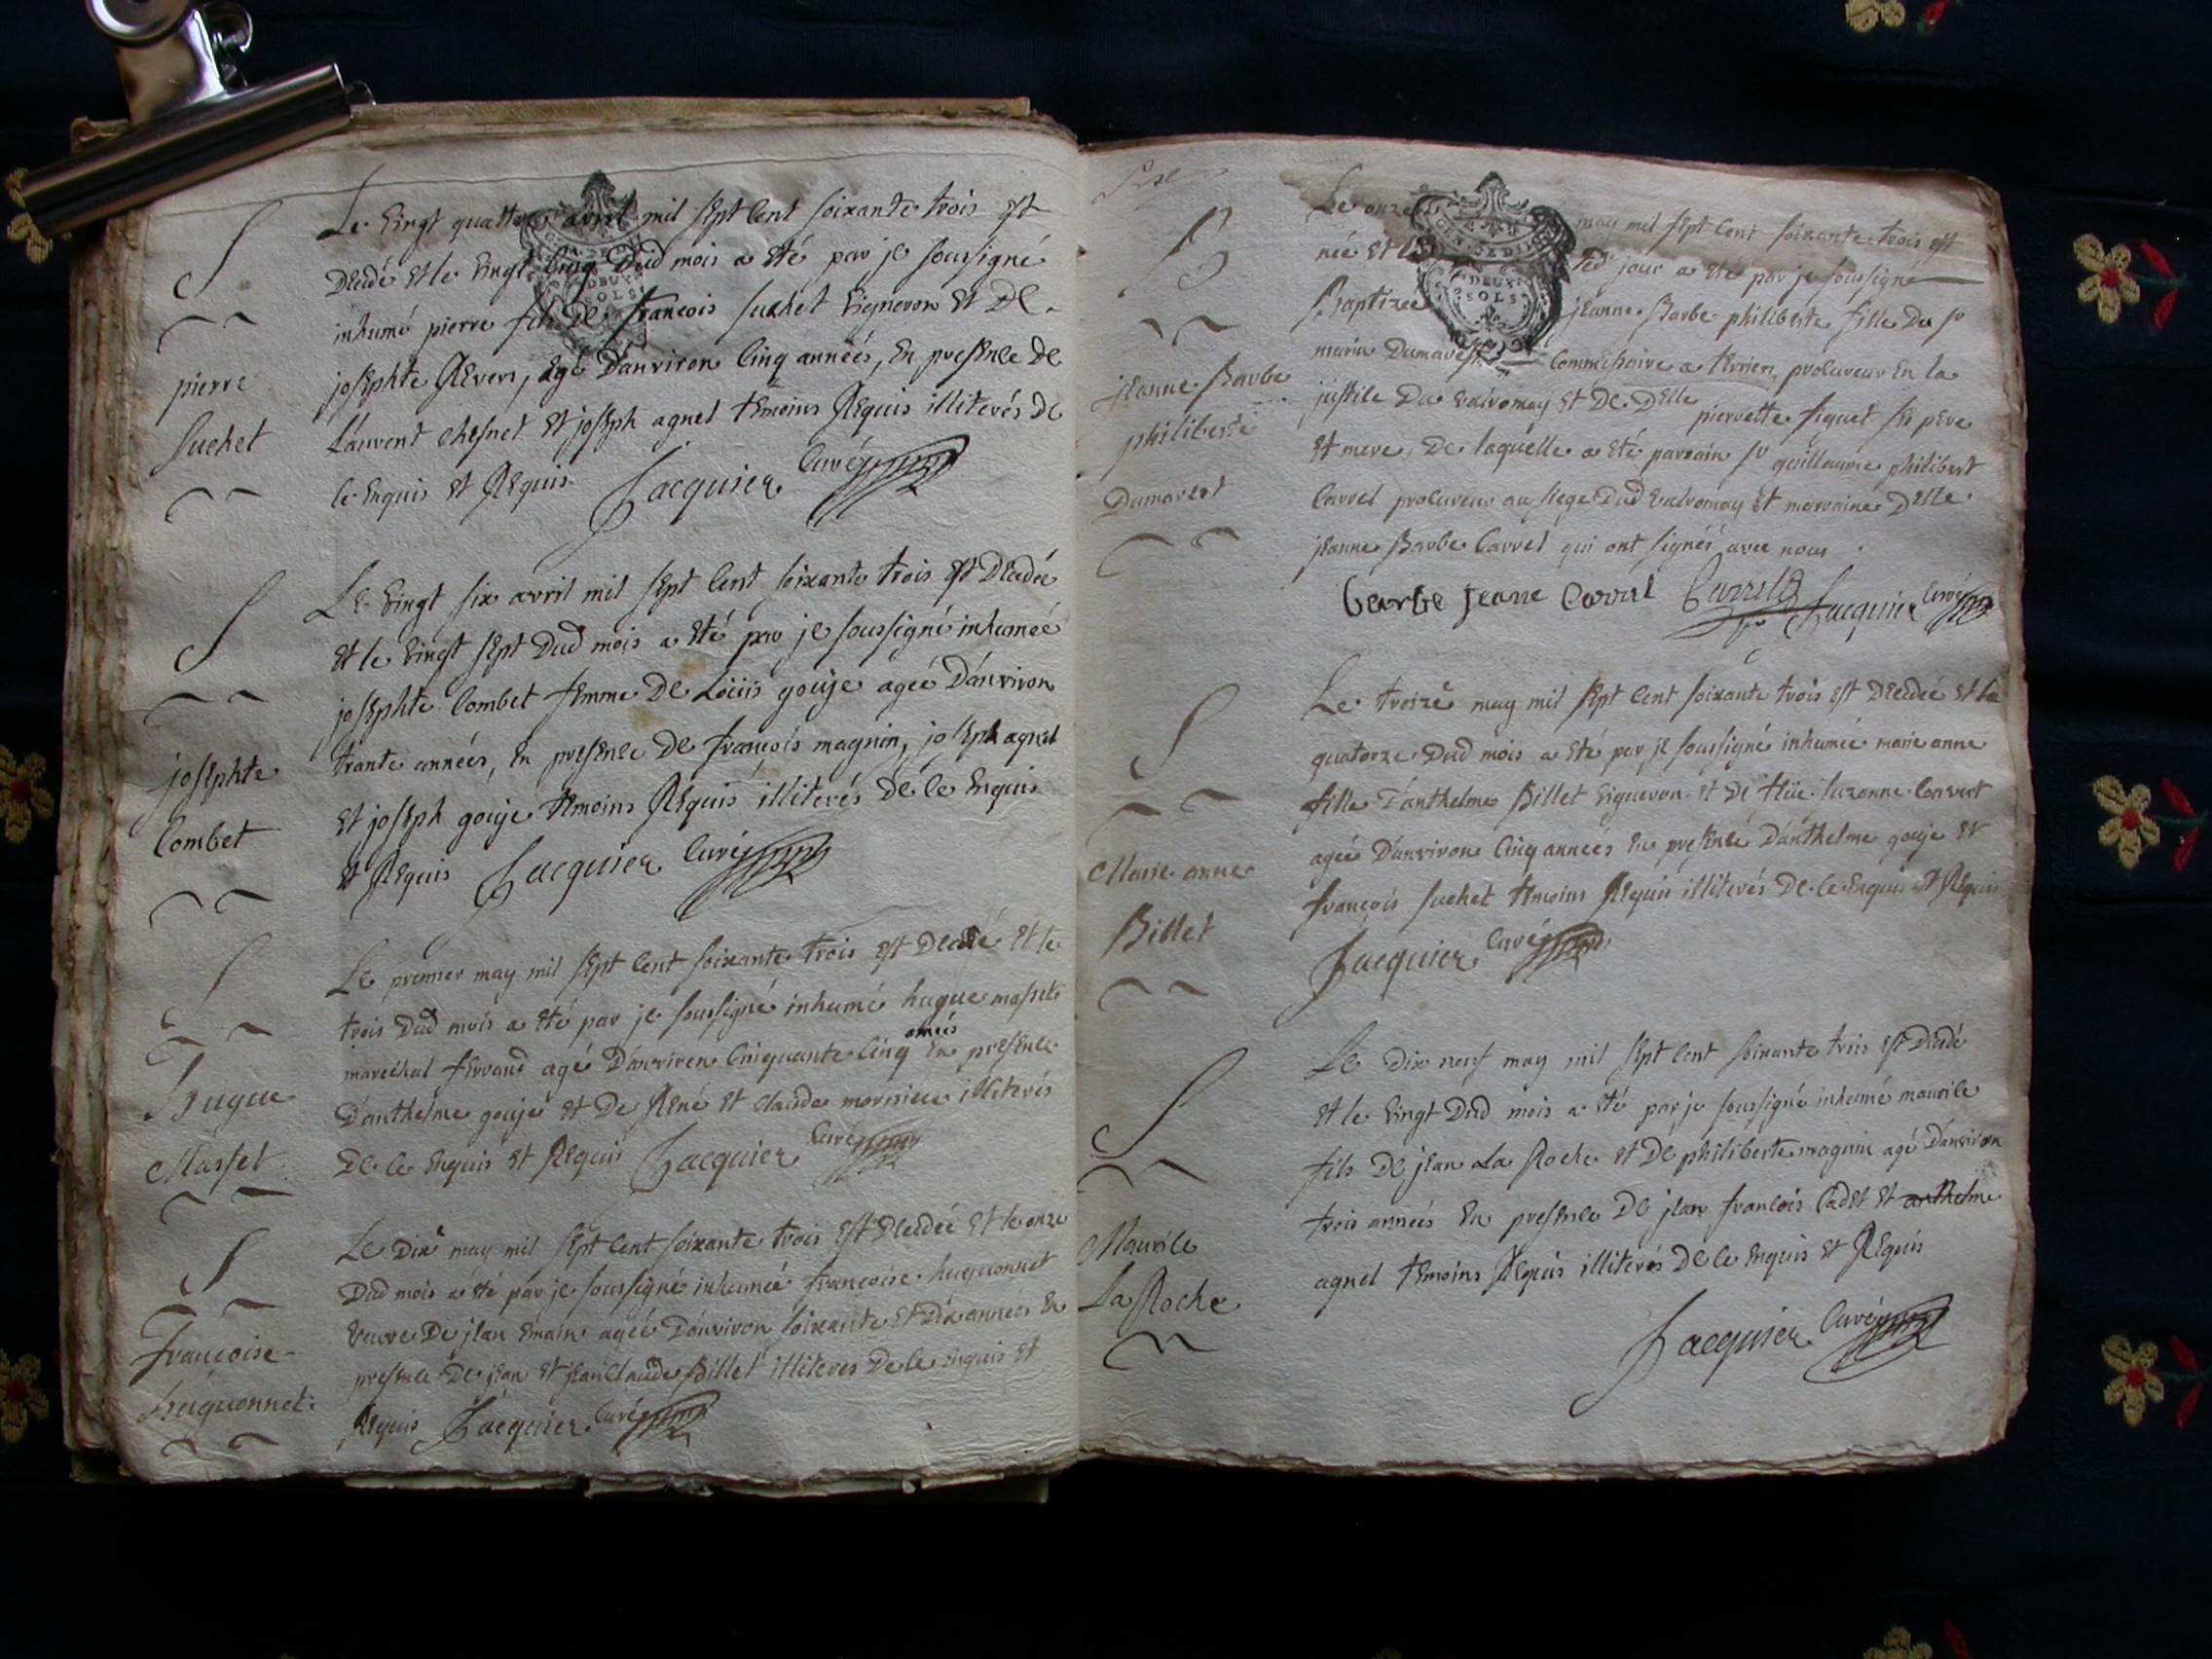 S
pierre
Suchet
Le vingt quattre avril mil sept cent soixante trois est
decedé et le vingt cinq dud mois a eté par je soussigné
inhumé pierre fils de françois suchet vigneron et de
josephte Revers, agé d'anviron cinq années, en presence de
Laurent chesnet et joseph agnel temoins Requis illiterés de
ce enquis et Requis Jacquier Curé
S
josephte
Combet
Le vingt six avril mil sept cent soixante trois est decedée
et le vingt sept dud mois a eté par je soussigné inhumée
josephte Combet femme de Loüis gouje ageé d'anviron
trante années, en presence de françois magnin, joseph agnel
et joseph gouje temoins Requis illiterés de ce enquis
et Requis Jacquier Curé
S
hugue
Masset
Le premier may mil sept cent soixante trois est decedé et le
trois dud mois a eté par je soussigné inhumé hugue masset
marechal ferrand agé d'anviron cinquante cinq années en presence
d'anthelme gouje et de René et claude mornieu illiterés
de ce enquis et Requis Jacquier Curé
S
françoise
huguonnet
Le dixe may mil sept cent soixante trois est decedée et le onze
dud mois a eté par je soussigné inhumée françoise huguonnet
veuve de jean emain ageé d'anviron soixante et dix années en
presence de jean et jean claude Billet illiterés de ce enquis et
Requis Jacquier Curé
B
jeanne Barbe
philiberte
Dumarest
Le onze may mil sept cent soixante trois est
née et le jour a eté par je soussigné
Baptizée jeanne Barbe philiberte fille du sr
marin Dumarest Commissaire a terrier, procureur en la
justice du valromay et de Delle pierrette siquet ses pere
et mere, de laquelle a eté parrain sr guillaume philibert
Carrel procureur au siege dud valromay et marraine Delle
jeanne Barbe Carrel qui ont signés avec nous
berbe jeane caral Carrel Jacquier Curé
S
Marie anne
Billet
Le treize may mil sept cent soixante trois est decedée et le
quatorze dud mois a eté par je soussigné inhumée marie anne
fille d'anthelme Billet vigneron et de süe suzanne Convert
ageé d'anviron cinq années en presence d'anthelme gouje et
françois suchet temoins Requis illiterés de ce enquis et Requis
Jacquier Curé
S
Maurile
La Roche
Le dix neuf may mil sept cent soixante trois est decedé
et le vingt dud mois a eté par je soussigné inhumé maurile
fils de jean La Roche et de philiberte magnin agé d'anviron
trois années en presence de jean françois cadet et anthelme
agnel temoins Requis illiterés de ce enquis et Requis
Jacquier Curé
GEN. DE DIJON
DEUX
SOLS